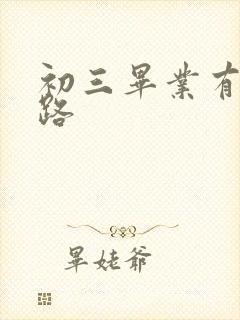 初三畢業有
路
畢姥爺